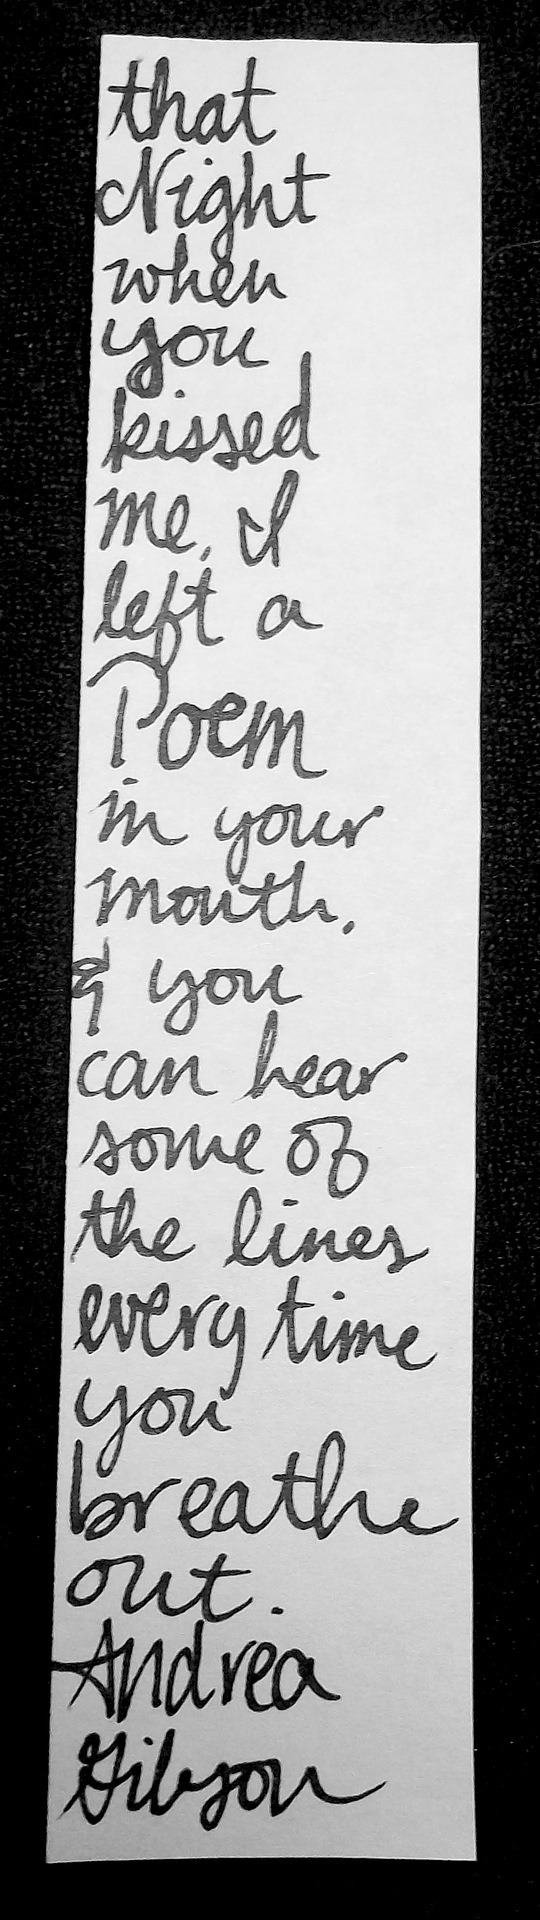 that
Night
when
you
kissed
me, I
left a
Poem
in your
mouth.
& you
can hear
some of
the lines
every time
you
breathe
out.
Andrea
Gibson